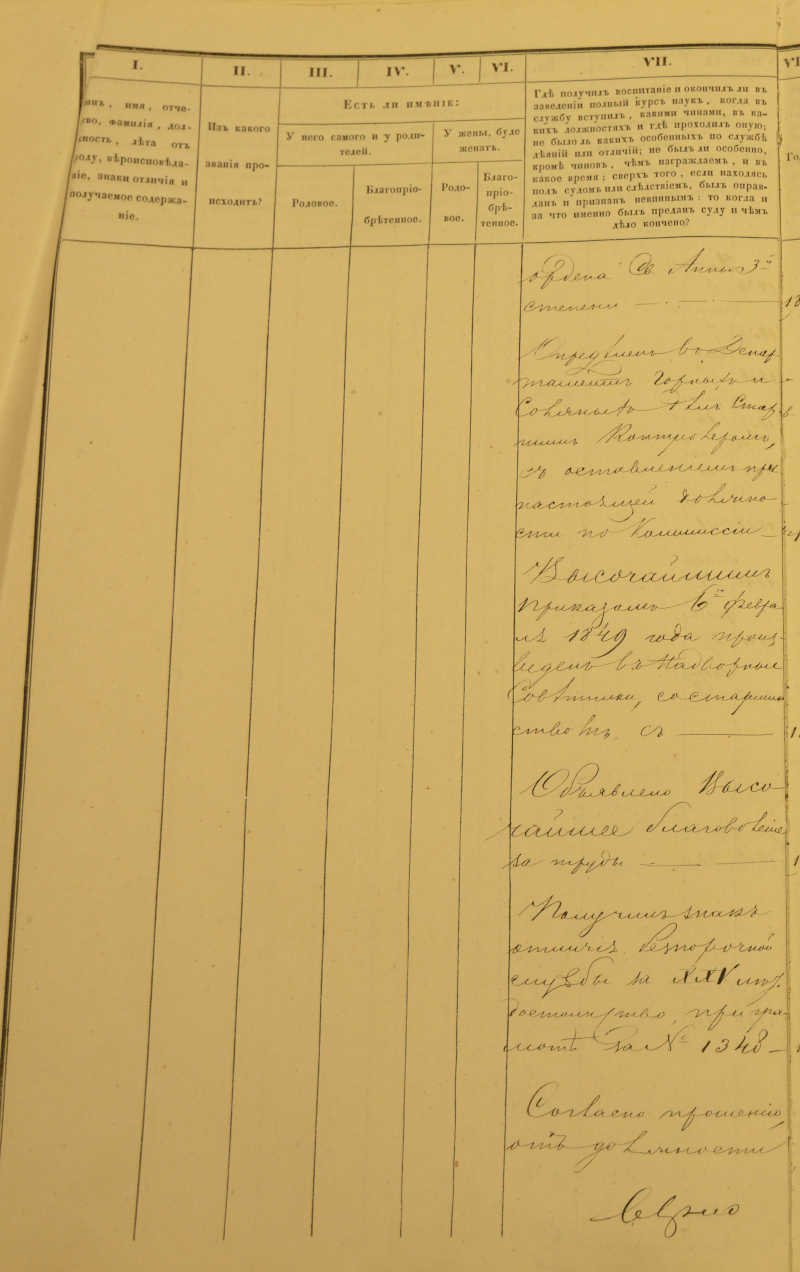 I.
II.
III.
IV.
V.
VI.
VII.
VI
чинъ, имя, отче-
ство, фамилія, дол-
жность, лѣта отъ
роду, вѣроисповѣда-
ніе, знаки отличія и
получаемое содержа-
ніе.
Изъ какого
званія про-
исходитъ?
Есть ли имѣніе:
У него самого и у роди-
телей.
У жены, буде
женатъ.
Родовое.
Благопріо-
брѣтенное.
Родо-
вое.
Благо-
пріо-
брѣ-
тенное.
Гдѣ получилъ воспитаніе и окончилъ ли въ
заведеніи полный курсъ наукъ, когда въ
службу вступилъ, какими чинами, въ ка-
кихъ должностяхъ и гдѣ проходилъ оную;
не было ль какихъ особенныхъ по службѣ
дѣяній или отличій; не былъ ли особенно,
кромѣ чиновъ, чѣмъ награждаемъ, и въ
какое время; сверхъ того, если находясь
подъ судомъ или слѣдствіемъ, былъ оправ-
данъ и признанъ невиннымъ: то когда и
за что именно былъ преданъ судy и чѣмъ
дѣло кончено?
Го
ордена Св Анны 3й
степени
18
Опредѣленъ въ Депар
таментъ Горныхъ и
Соляныхъ дѣлъ Стар
шимъ Контролеромъ,
съ оставленіемъ при
настоящей должно-
сти по Коммиссіи
Высочайшимъ
приказомъ 6го февра
ля 1849 года произ-
веденъ въ Надворные
Совѣтники, со старшин
ствомъ съ
Объявлено Высо-
чайшее благоволеніе
за труды
Получилъ знакъ
отличія безпорочной
службы за XXV лѣтъ
достоинство, при гра-
мотѣ за № 1348
Согласно прошенію
отъ должности
Вѣрно